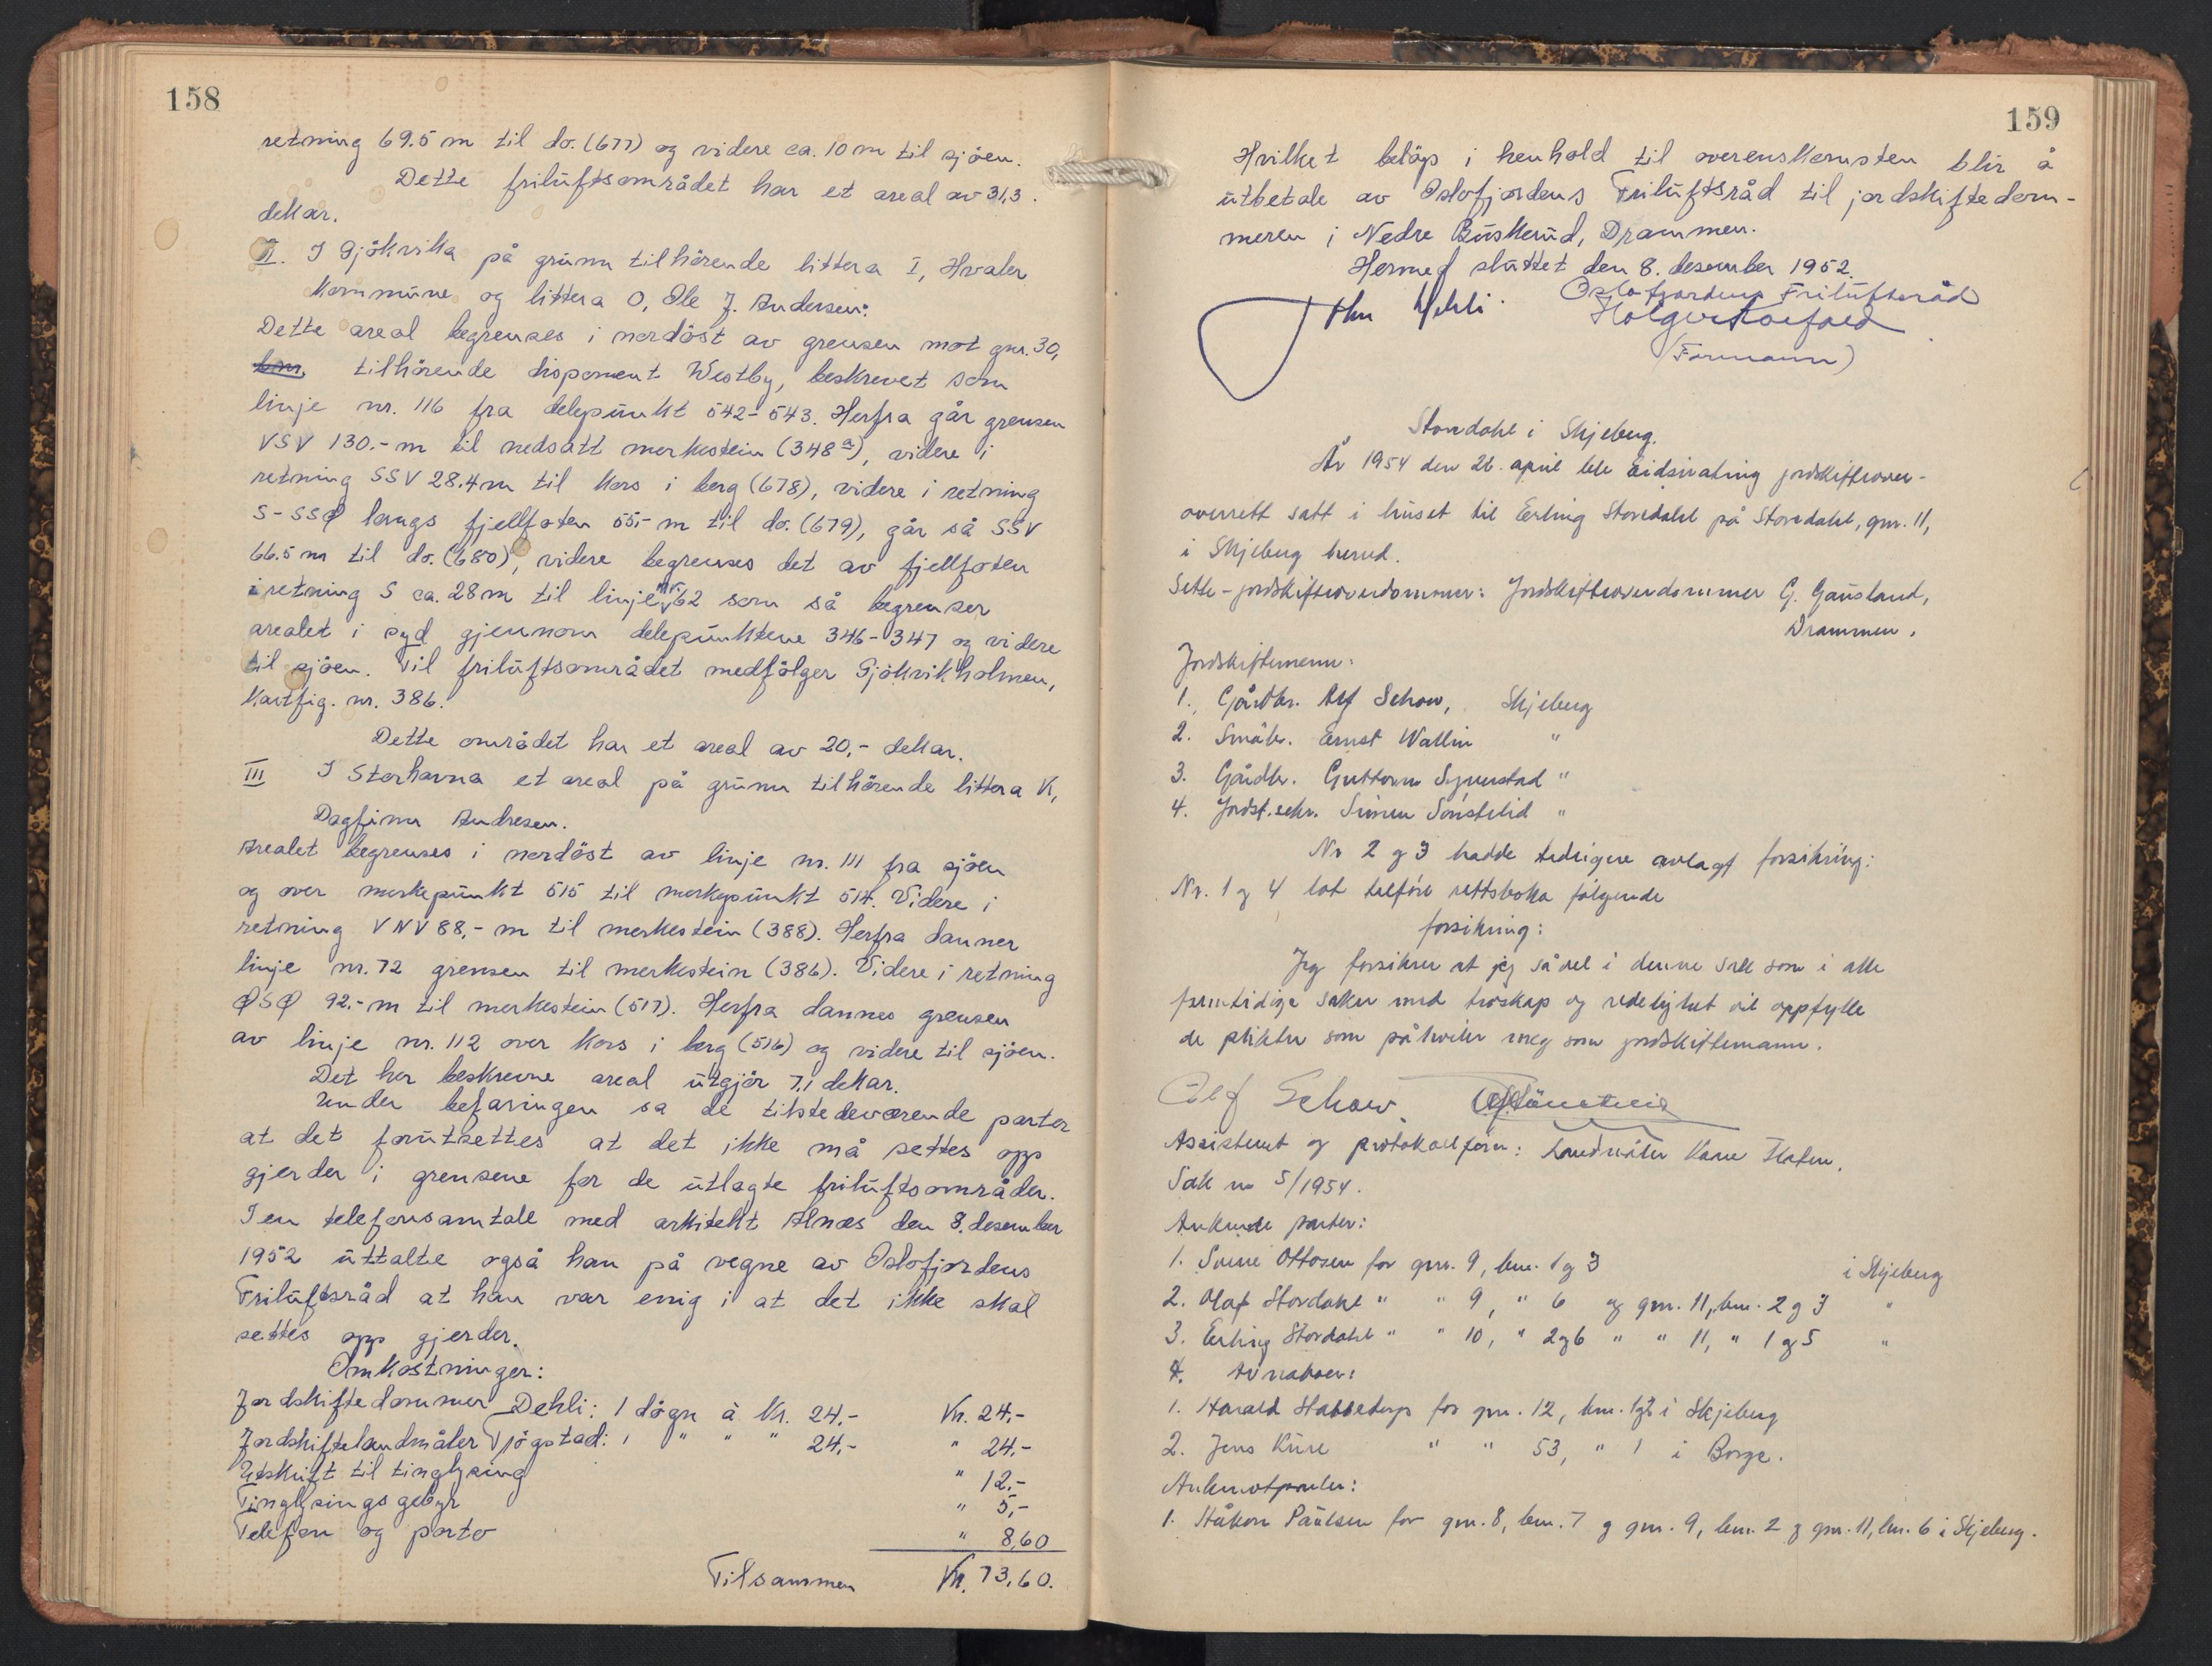 158
retning 69.5 m til do. (677) og videre ca. 10 m til sjöen.
Dette friluftsområdet har et areal av 31,3
dekar.
II. I Gjökvika på grunn tilhörende littera I, Hvaler
Kommune og littera O, Ole J. Andersen:
Dette areal begrenses i nordöst av grensen mot gnr. 30,
bnr. tilhörende disponent Westby, beskrevet som
linje nr. 116 fra delepunkt 542-543. Herfra går grensen
VSV 130.- m til nedsatt merkestein (348 a), videre i
retning SSV 28.4 m til kors i berg (678), videre i retning
S-SSØ langs fjellfoten 55,- m til do. (679), går så SSV
66.5 m til do. (680), videre begrenses det av fjellfoten
i retning S ca. 28 m til linje nr. 62 som så begrenser
arealet i syd gjennom delepunktene 346-347 og videre
til sjöen. Til friluftsområdet medfölger Gjökvikholmen,
Kartfig. nr. 386.
Dette området har et areal av 20,- dekar.
III I Storhavna et areal på grunn tilhörende littera K,
Dagfinn Andresen.
Arealet begrenses i nordöst av linje nr. 111 fra sjöen
og over merkepunkt 515 til merkepunkt 514. Videre i
retning VNV 88,- m til merkestein (388). Herfra danner
linje nr. 72 grensen til merkestein (386). Videre i retning
ØSØ 92.- m til merkestein (517). Herfra dannes grensen
av linje nr. 112 over kors i berg (516) og videre til sjöen.
Det her beskrevne areal utgjör 7,1 dekar.
Under befaringen sa de tilstedeværende parter
at det forutsettes at det ikke må settes opp
gjerder i grensene for de utlagte friluftsområder.
I en telefonsamtale med arkitekt Alnæs den 8. desember
1952 uttalte også han på vegne av Oslofjordens
Friluftsråd at han var enig i at det ikke skal
settes opp gjerder.
Omkostninger:
Jordskiftedommer Dehli: 1 dögn à Kr. 24.- Kr. 24,-
Jordskiftelandmåler Tjögstad: 1 " " " 24,- " 24,-
Utskrift til tinglysing " 12,-
Tinglysingsgebyr " 5,-
Telefon og porto " 8,60
Tilsammen Kr. 73,60.
159
Hvilket belöp i henhold til overenskomsten blir å
utbetale av Oslofjordens Friluftsråd til jordskiftedom-
meren i Nedre Buskerud, Drammen.
Hermed sluttet den 8. desember 1952.
Oslofjordens Friluftsråd
John Dehli. Holger Koefoed
(Formann)
Stordahl i Skjeberg.
År 1954 den 22. april ble Eidsivating jordskifteover-
overrett satt i huset til Erling Stordahl på Stordahl, gnr. 11,
i Skjeberg herred.
Sette-jordskifteoverdommer: Jordskifteoverdommer G. Gausland,
Drammen.
Jordskiftemenn:
1. Gårdbr. Alf Schow, Skjeberg
2. Småbr. Ernst Wallin "
3. Gårdbr. Guttorm Synnestad "
4. Jordst.sekr. Simen Sönstelid "
Nr 2 og 3 hadde tidligere avlagt forsikring:
Nr. 1 og 4 lot tilföre rettsboka fölgende
forsikring:
Jeg forsikrer at jeg såvel i denne sak som i alle
fremtidige saker med troskap og redelighet vil oppfylle
de plikter som påhviler meg som jordskiftemann.
Alf Schow.
Assistent og protokollförer: Landmåler Kåre
Sak nr 5/1954.
Ankende parter:
1. Sverre Ottosen for gnr. 9, bnr. 1 og 3 i Skjeberg
2. Olaf Stordahl " " 9, " 6 og gnr. 11, bnr. 2 og 3 "
3. Erling Stordahl " " 10, " 2 og 6 " " 11, " 1 og 5 "
4. Av naboer:
1. Harald for gnr. 12, bnr. 1 og 2 i Skjeberg
2. Jens Kure " " 53, " 1 i Borge.
Ankemotparter:
1. Håkon Paulsen for gnr. 8, bnr. 7 og gnr. 9, bnr. 2 og gnr. 11, bnr. 6 i Skjeberg.